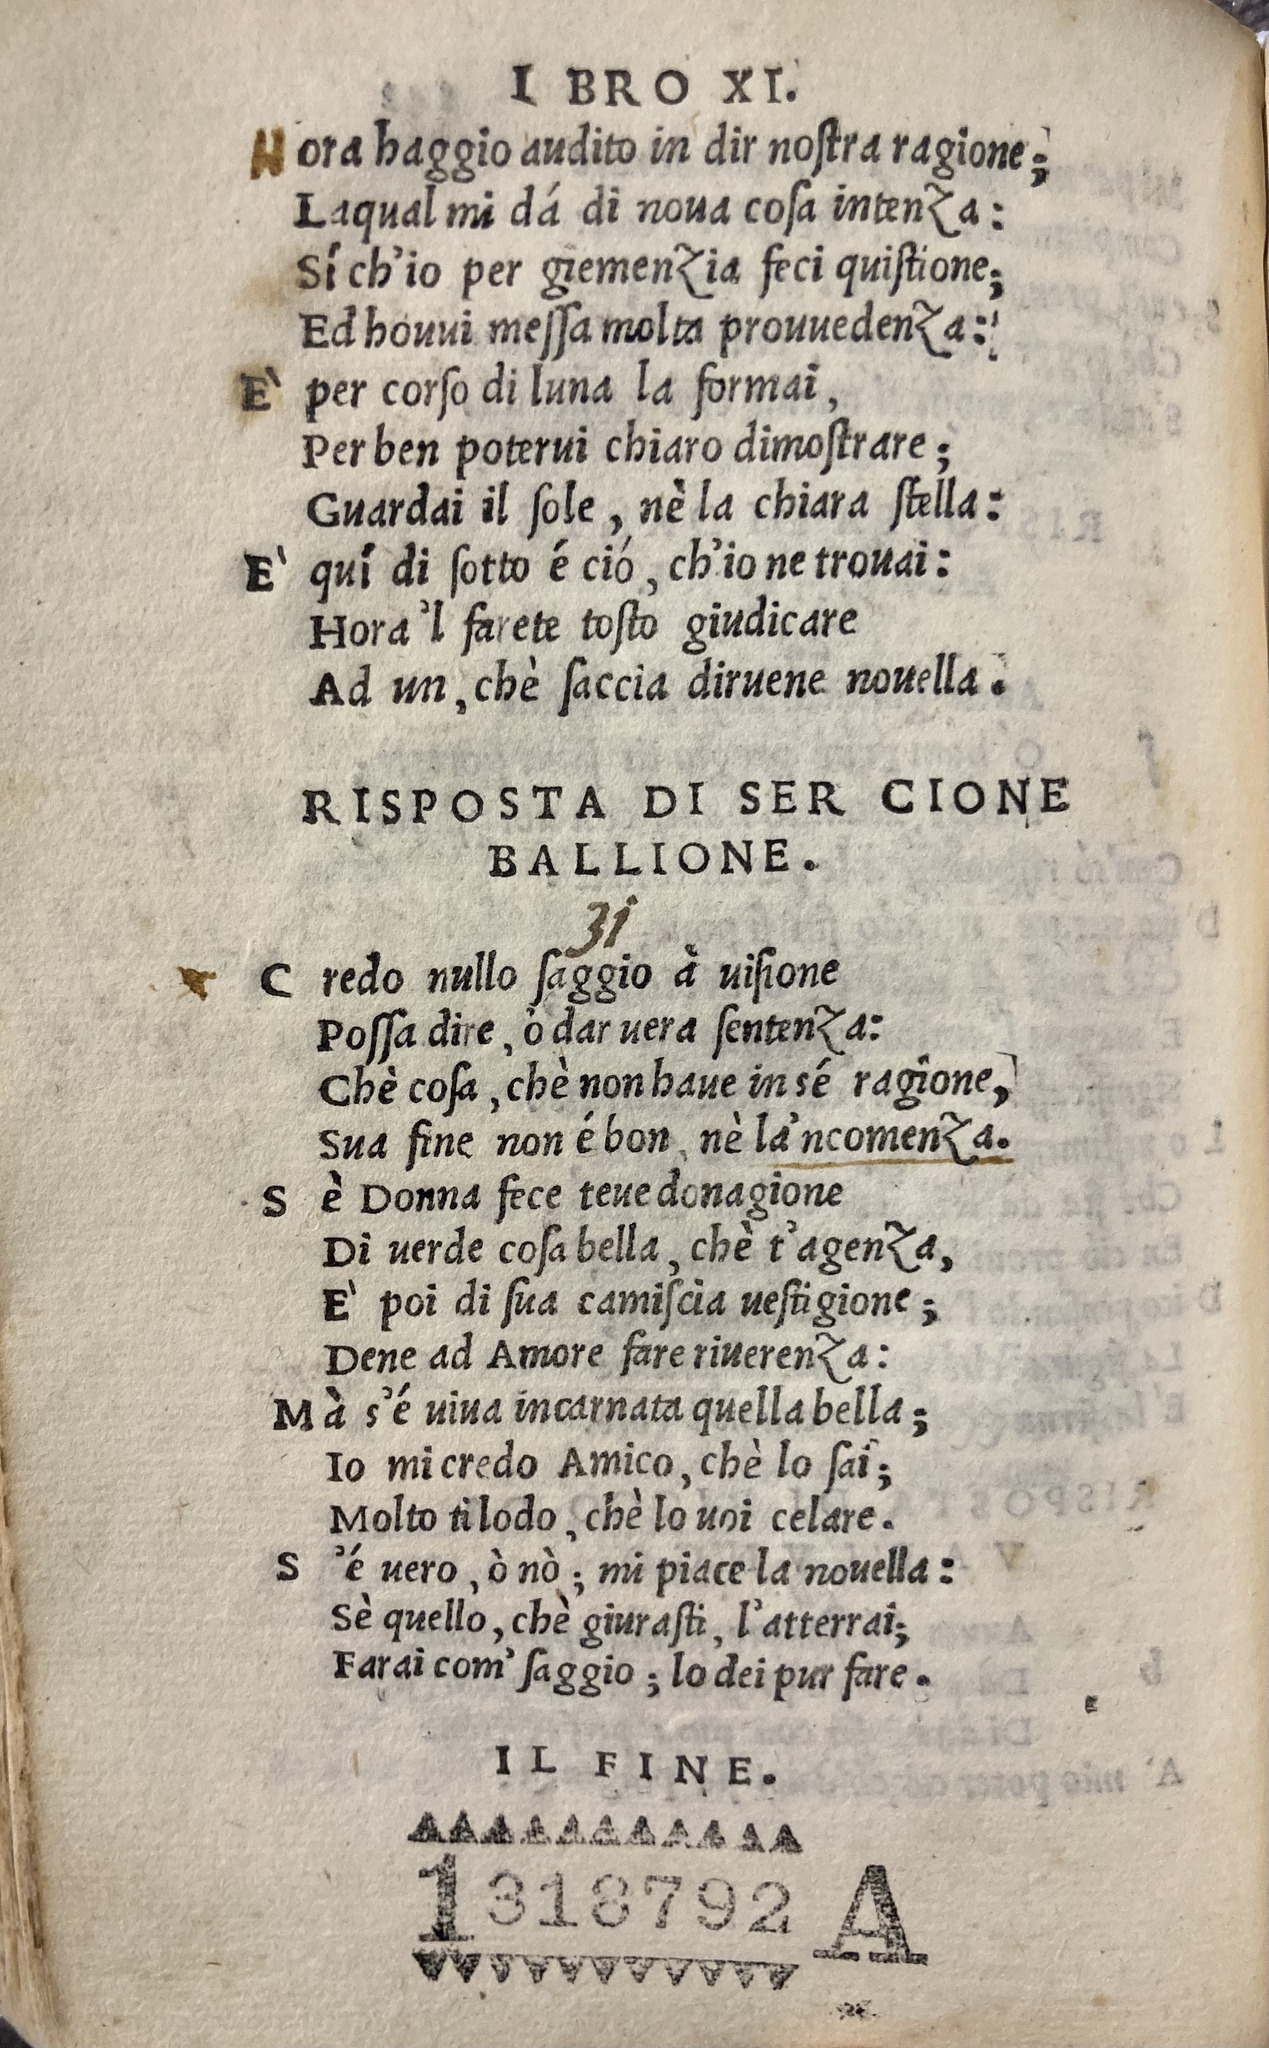 I BRO XI.
Hora haggio audito in dir noſtra ragione;
Laqual mi dá di noua coſa intenza:
Sí ch'io per giemenzia feci quiſtione;
Ed houui meſſa molta prouuedenza:
E` per corſo di luna la formai,
Per ben poterui chiaro dimoſtrare;
Guardai il ſole, nè la chiara ſtella:
E` quí di ſotto é ció, ch'io ne trouai:
Hora 'l farete toſto giudicare
Ad un, chè ſaccia diruene nouella.
RISPOSTA DI SER CIONE
BALLIONE.
31
Credo nullo ſaggio à uiſione
Poſſa dire, ò dar uera ſentenza:
Chè coſa, chè non haue in sé ragione,
Sua fine non é bon, nè la'ncomenza.
Sè Donna fece teue donagione
Di uerde coſa bella, chè t'agenza,
E` poi di ſua camiſcia ueſtigione;
Dene ad Amore fare riuerenza:
Mà s'é uiua incarnata quella bella;
Io mi credo Amico, chè lo ſai;
Molto ti lodo, chè lo uoi celare.
S'é uero, ò nò; mi piace la nouella:
Sè quello, chè giuraſti, l'atterrai;
Farai com' ſaggio; lo dei pur fare.
IL FINE.
1318792 A